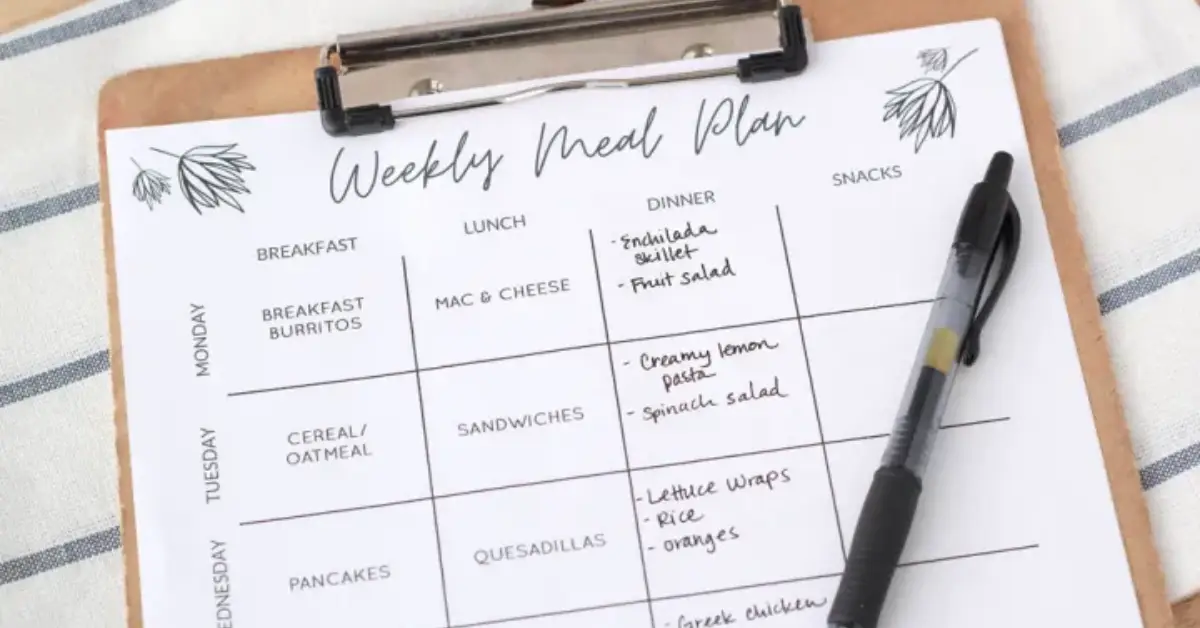 Weekly Meal Plan
BREAKFAST
LUNCH
DINNER
SNACKS
MONDAY
BREAKFAST
BURRITOS
MAC & CHEESE
- Enchilada
skillet
- Fruit salad
TUESDAY
CEREAL/
OATMEAL
SANDWICHES
- Creamy lemon
pasta
- Spinach salad
EDNESDAY
PANCAKES
QUESADILLAS
- Lettuce Wraps
- Rice
- oranges
- Greek chicken